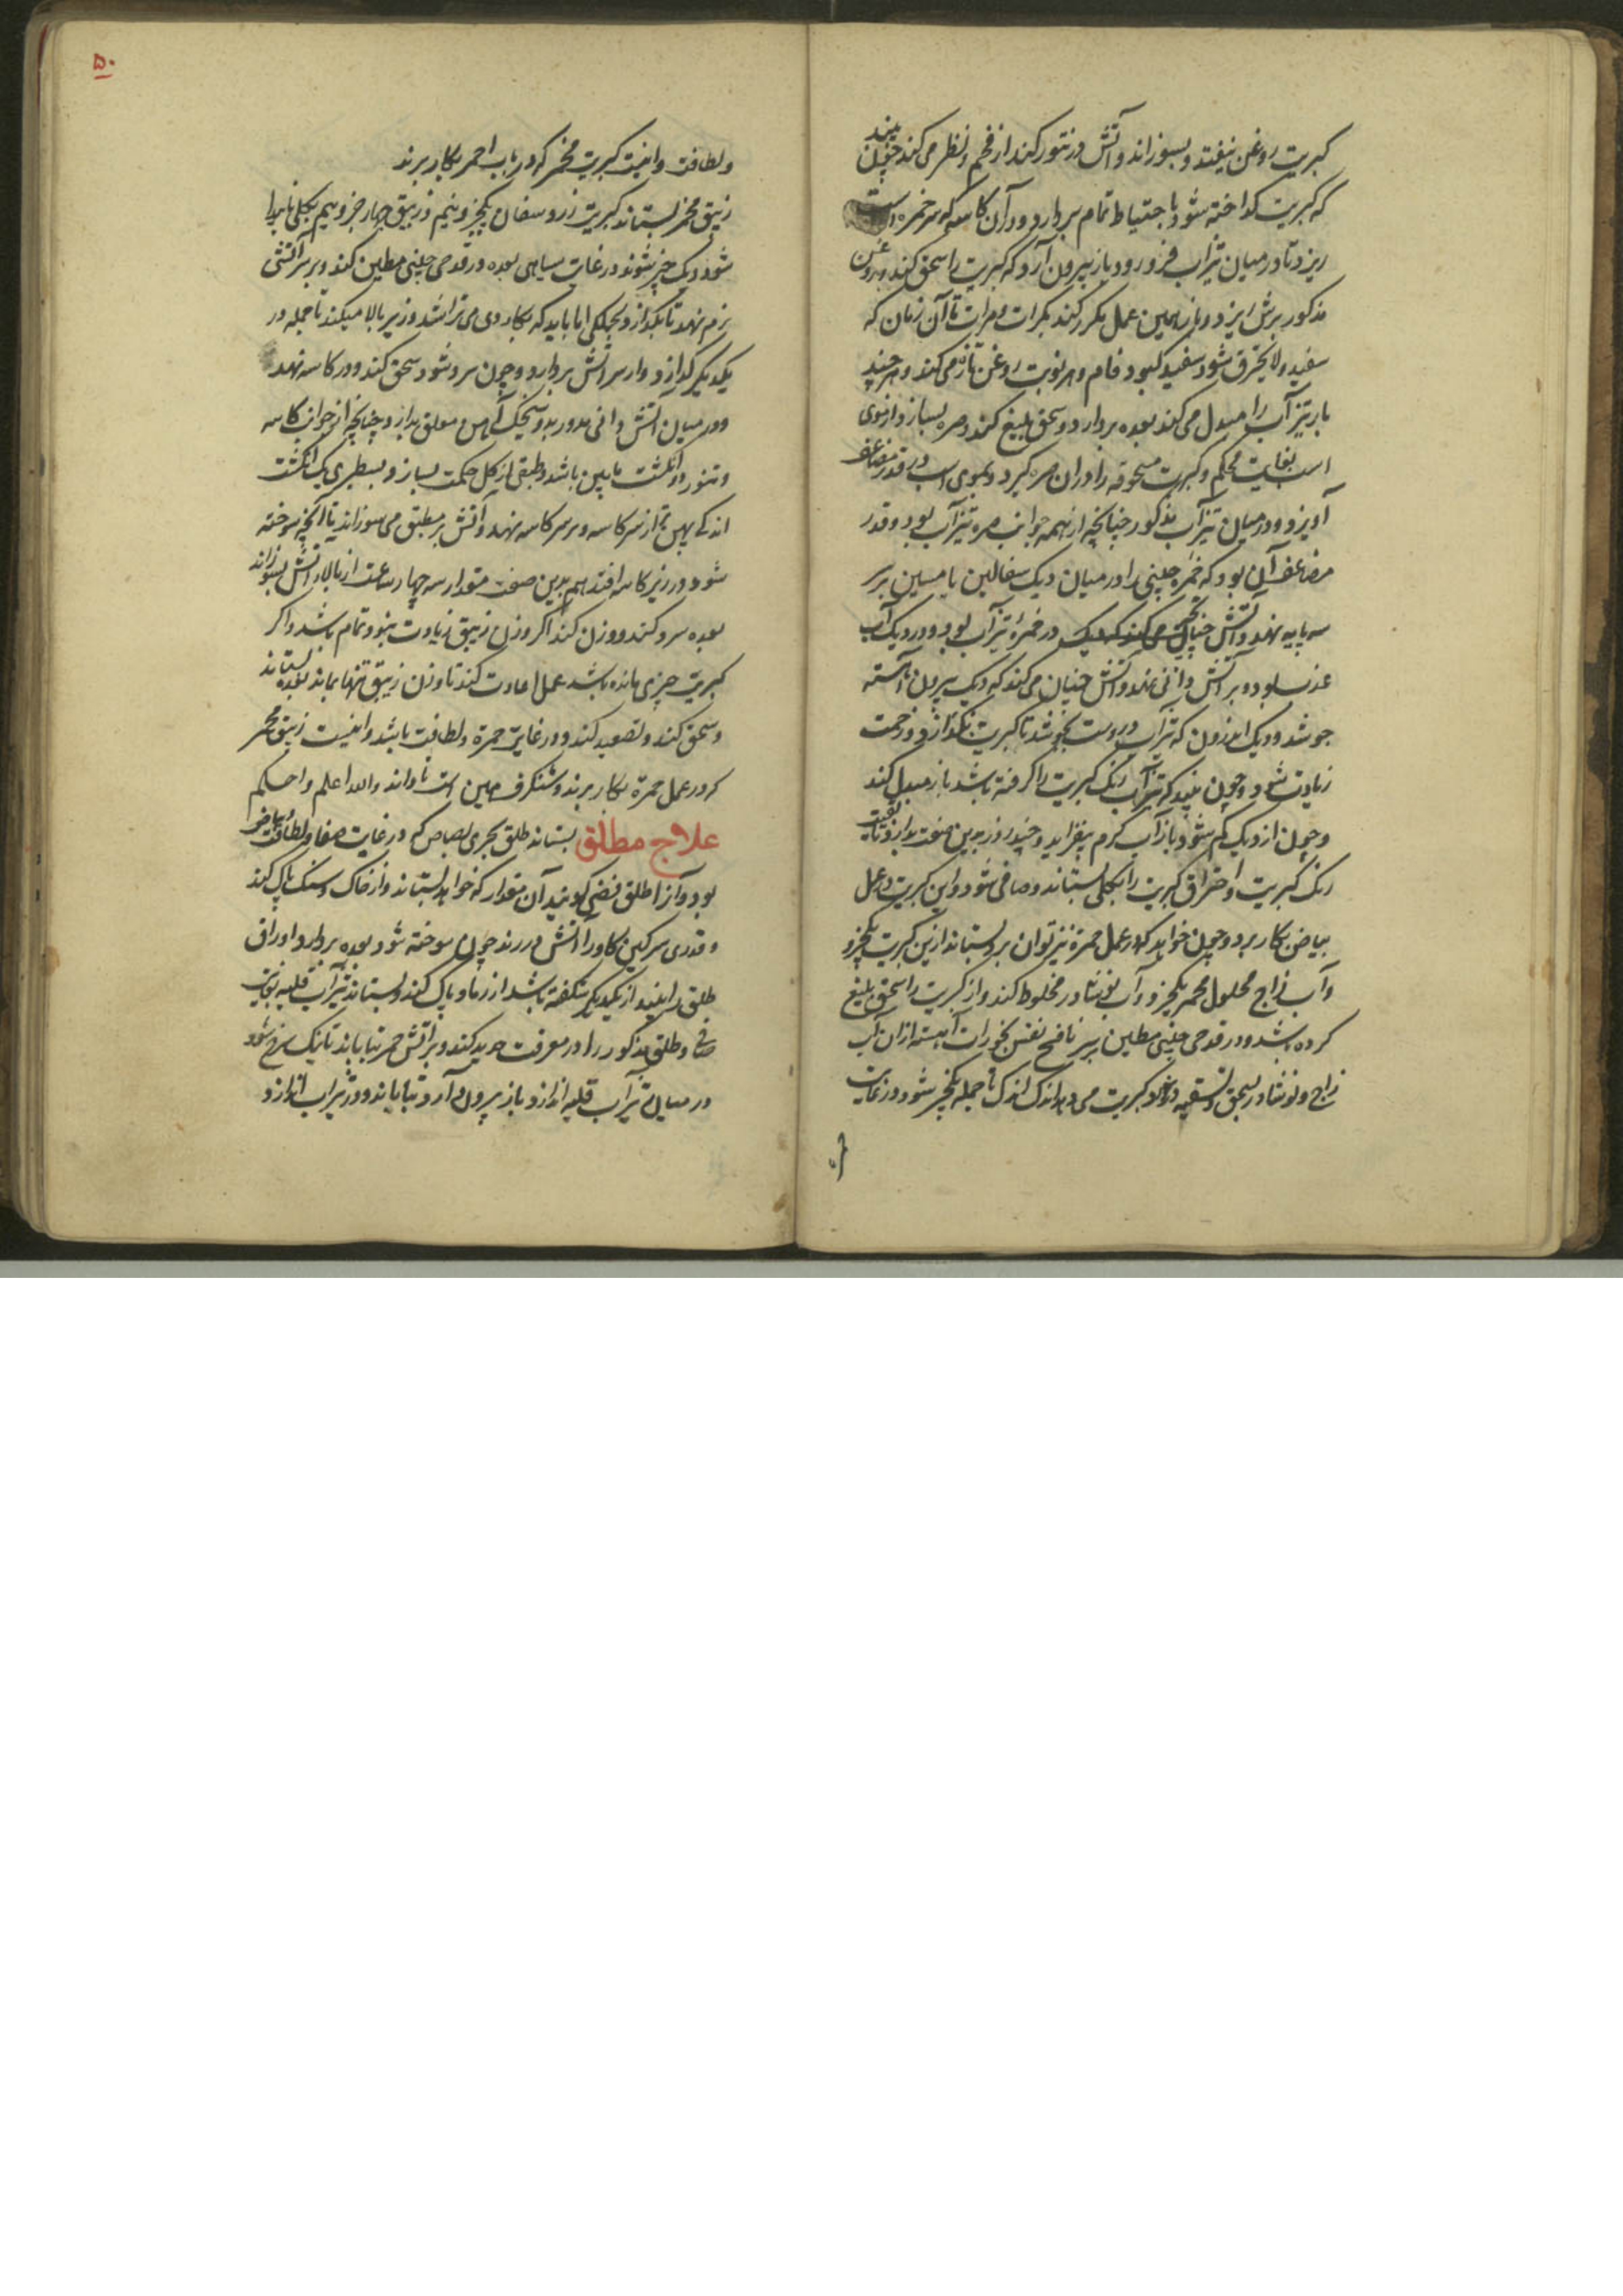 کبریت روغن نیفتد و بسوزاند و آتش در تنور کند از فحم و نظر می کند چون بیند
که کبریت کداخته شود با حتیاط تمام بردارد و در آن کاسه که سر خمره است
ریزد تا در میان تیزآب فرو رود باز بیرون آرد که کبریت را سحق کند و روغن
مذکور برش ریزد و باز همین عمل مکرر کند بکرات و مرات تا آن زمان که
سفید و لا یحترق شود سفید کبود فام و هر نوبت روغن تازه می کند و هر چند
بار تیزآب را مبدل می کند بعده بردارد و سحق بلیغ کند و صره بسازد از موی
اسب بغایت محکم و کبریت مسحوقه را در آن صره کیرد و بموی اسب در قدر مضاعف
آویزد و در میان تیزآب مذکور چنانچه از همه جوانب صره تیزآب بود و قدر
مضاعف آن بود که خمره چینی را در میان دیک سفالین یا مسین بر سر
سه پایه نهد و آتش چنان می کند که دیک در خمره تیزآب بود و در دیک آب
عذب بود و بر آتش دانی نهد و آتش چنان می کند که دیک بیرون آهسته
جوشد و دیک اندرون که تیزآب دروست بجوشد تا کبریت نکدازد و زحمت
زیادت شود و چون بیند که تیزآب رنک کبریت را کرفته باشد باز مبدل کند
و چون از دیک کم شود باز آب کرم بیفزاید و چند روز بدین صفت بدارد تا بوقت
رنک کبریت و احتراق کبریت را بکلی بستاند و صافی شود و این کبریت در عمل
بیاض بکار برد و چون خواهد که در عمل حمرة نیز توان برد بستاند ازین کبریت یکجزو
و آب زاج محلول محمر یکجزو و آب نوشادر مخلوط کند و از کبریت را سحق بلیغ
کرده باشد و در قدحی چینی مطین بر سر نافخ نفس بخورات آهسته ازان آب
زاج و نوشادر بسحق و تسقیه و بخورد کبریت می دهد اندک اندک تا جمله یکچیز شود و در غایت
حمرة
۵۰
و لطافت و اینست کبریت محمر که در باب احمر بکار برند
زیبق محمر بستاند کبریت زرد سفال یکجزو و نیم و زیبق چهار جزو و نیم بکلی ناپیدا
شود و یک چیز شوند در غایت سیاهی بعده در قدحی چینی مطین کند و بر سر آتشی
نرم نهد تا بکدازد بجملکی اما باید که بکاردی می تراشد و زیر بالا میکند تا جمله در
یکدیکر کدازد و از سر آتش بردارد و چون سرد شود سحق کند و در کاسه نهد
و در میان آتش دانی مدور بدو سیخک آهنین معلق بدارد چنانچه از جوانب کاسه
و تنور دو انکشت مابین باشد و طبقی از کل حکمت بسازد بسطبری یک انکشت
اندکی پهن تر از سر کاسه و بر سر کاسه نهد و آتش بر مطبق می سوزاند تا آنچه سوخته
شود در زیر کاسه افتد هم بدین صفت مقدار سه چهار ساعت از بالا آتش بسوزاند
بعده سرد کند و وزن کند اکر وزن زیبق زیادت نبود تمام باشد و اکر
کبریت چیزی مانده باشد عمل اعادت کند تا وزن زیبق تنها بماند بعده بستاند
و سحق کند و تصعید کند و در غایت حمرة و لطافت باشد و اینست زیبق محمر
که در عمل حمرة بکار برند و شنکرف همین است تا داند والله اعلم و احکم
علاج مطلق بستاند طلق بحری بصاص که در غایت صفا و لطافت و بیاض
بود و آنرا طلق فضی کویند آن مقدار که خواهد بستاند و از خاک و سنک پاک کند
و قدری سرکین کاو را آتش در زند چون سوخته شود بعده بردارد اوراق
طلق را بیند از یکدیکر شکفته باشد از رماد پاک کند و بستاند تیزآب قلیه بغایت
صافی و طلق مذکور را در مغرفت حدید کند و بر آتش جمر بتاباند تا نیک سرخ شود
در میان تیزآب قلیه اندازد باز بیرون آرد و بتاباند و در تیزاب اندازد